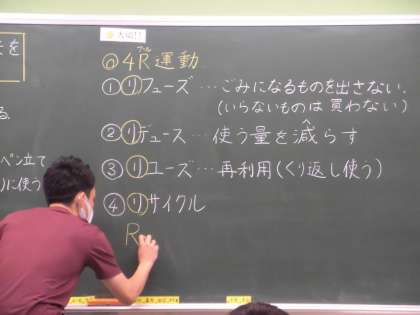 大切!!
◎4R運動
アール
①リフューズ…ごみになるものを出さない.
(いらないものは買わない)
②リデュース…使う量を減らす
へ
③リユーズ…再利用(くり返し使う)
④リサイクル
R
を
る
ペン立て
に使う